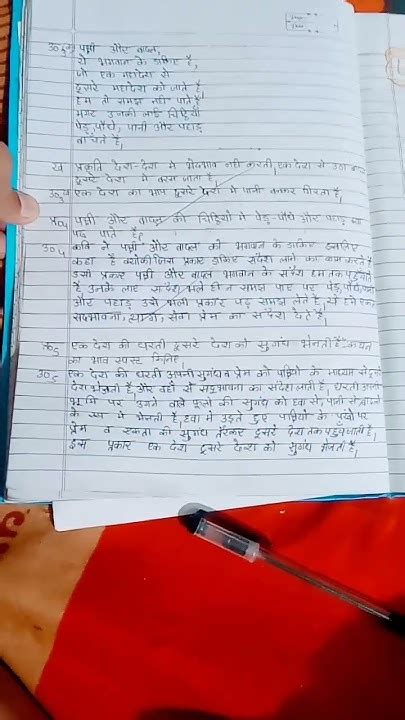 उ०3क पक्षी और बादल,
ये भगवान के डाकिए हैं,
जो एक महादेश से
दूसरे महादेश को जाते हैं,
हम तो समझ नहीं पाते हैं
मगर उनकी लाई चिट्ठियाँ
पेड़, पौधे, पानी और पहाड़
बाँचते हैं,
ख प्रकृति देश-देश में भेदभाव नहीं करती, एक देश से उठा बादल
दूसरे देश में बरस जाता है,
उ०3ग एक देश का भाप दूसरे देश में पानी बनकर गिरता है,
प्र०4 पक्षी और बादल की चिट्ठियों में पेड़-पौधे और पहाड़ क्या
पढ़ पाते हैं,
उ०4 कवि ने पक्षी और बादल को भगवान के डाकिए इसलिए
कहा है क्योंकि जिस प्रकार डाकिए संदेश लाने का काम करते हैं
उसी प्रकार पक्षी और बादल भगवान के संदेश हम तक पहुँचाते
हैं उनके लाए संदेश भले ही न समझ पाए पर पेड़, पौधे,
और पहाड़ उसे भली प्रकार पढ़ समझ लेते हैं,
सद्भावना, सेवा प्रेम का संदेश देते हैं,
प्र०5 एक देश की धरती दूसरे देश को सुगंध भेजती है-कथन
का भाव स्पस्ट किजिए
उ०5 एक देश की धरती अपनी सुगंध व प्रेम को पक्षियों के माध्यम से दूसरे
देश भेजती है, और वहाँ से सद्भावना का संदेश लाती है, धरती अपनी
भूमि पर उगने वाले फूलों की सुगंध को हवा से, पानी से
के रूप में भेजती है, हवा में उड़ते हुए पक्षियों के पंखों पर
प्रेम व एकता की सुगंध तैरकर दूसरे देश तक पहुँच जाती है,
इस प्रकार एक देश दूसरे देश को सुगंध भेजती है,